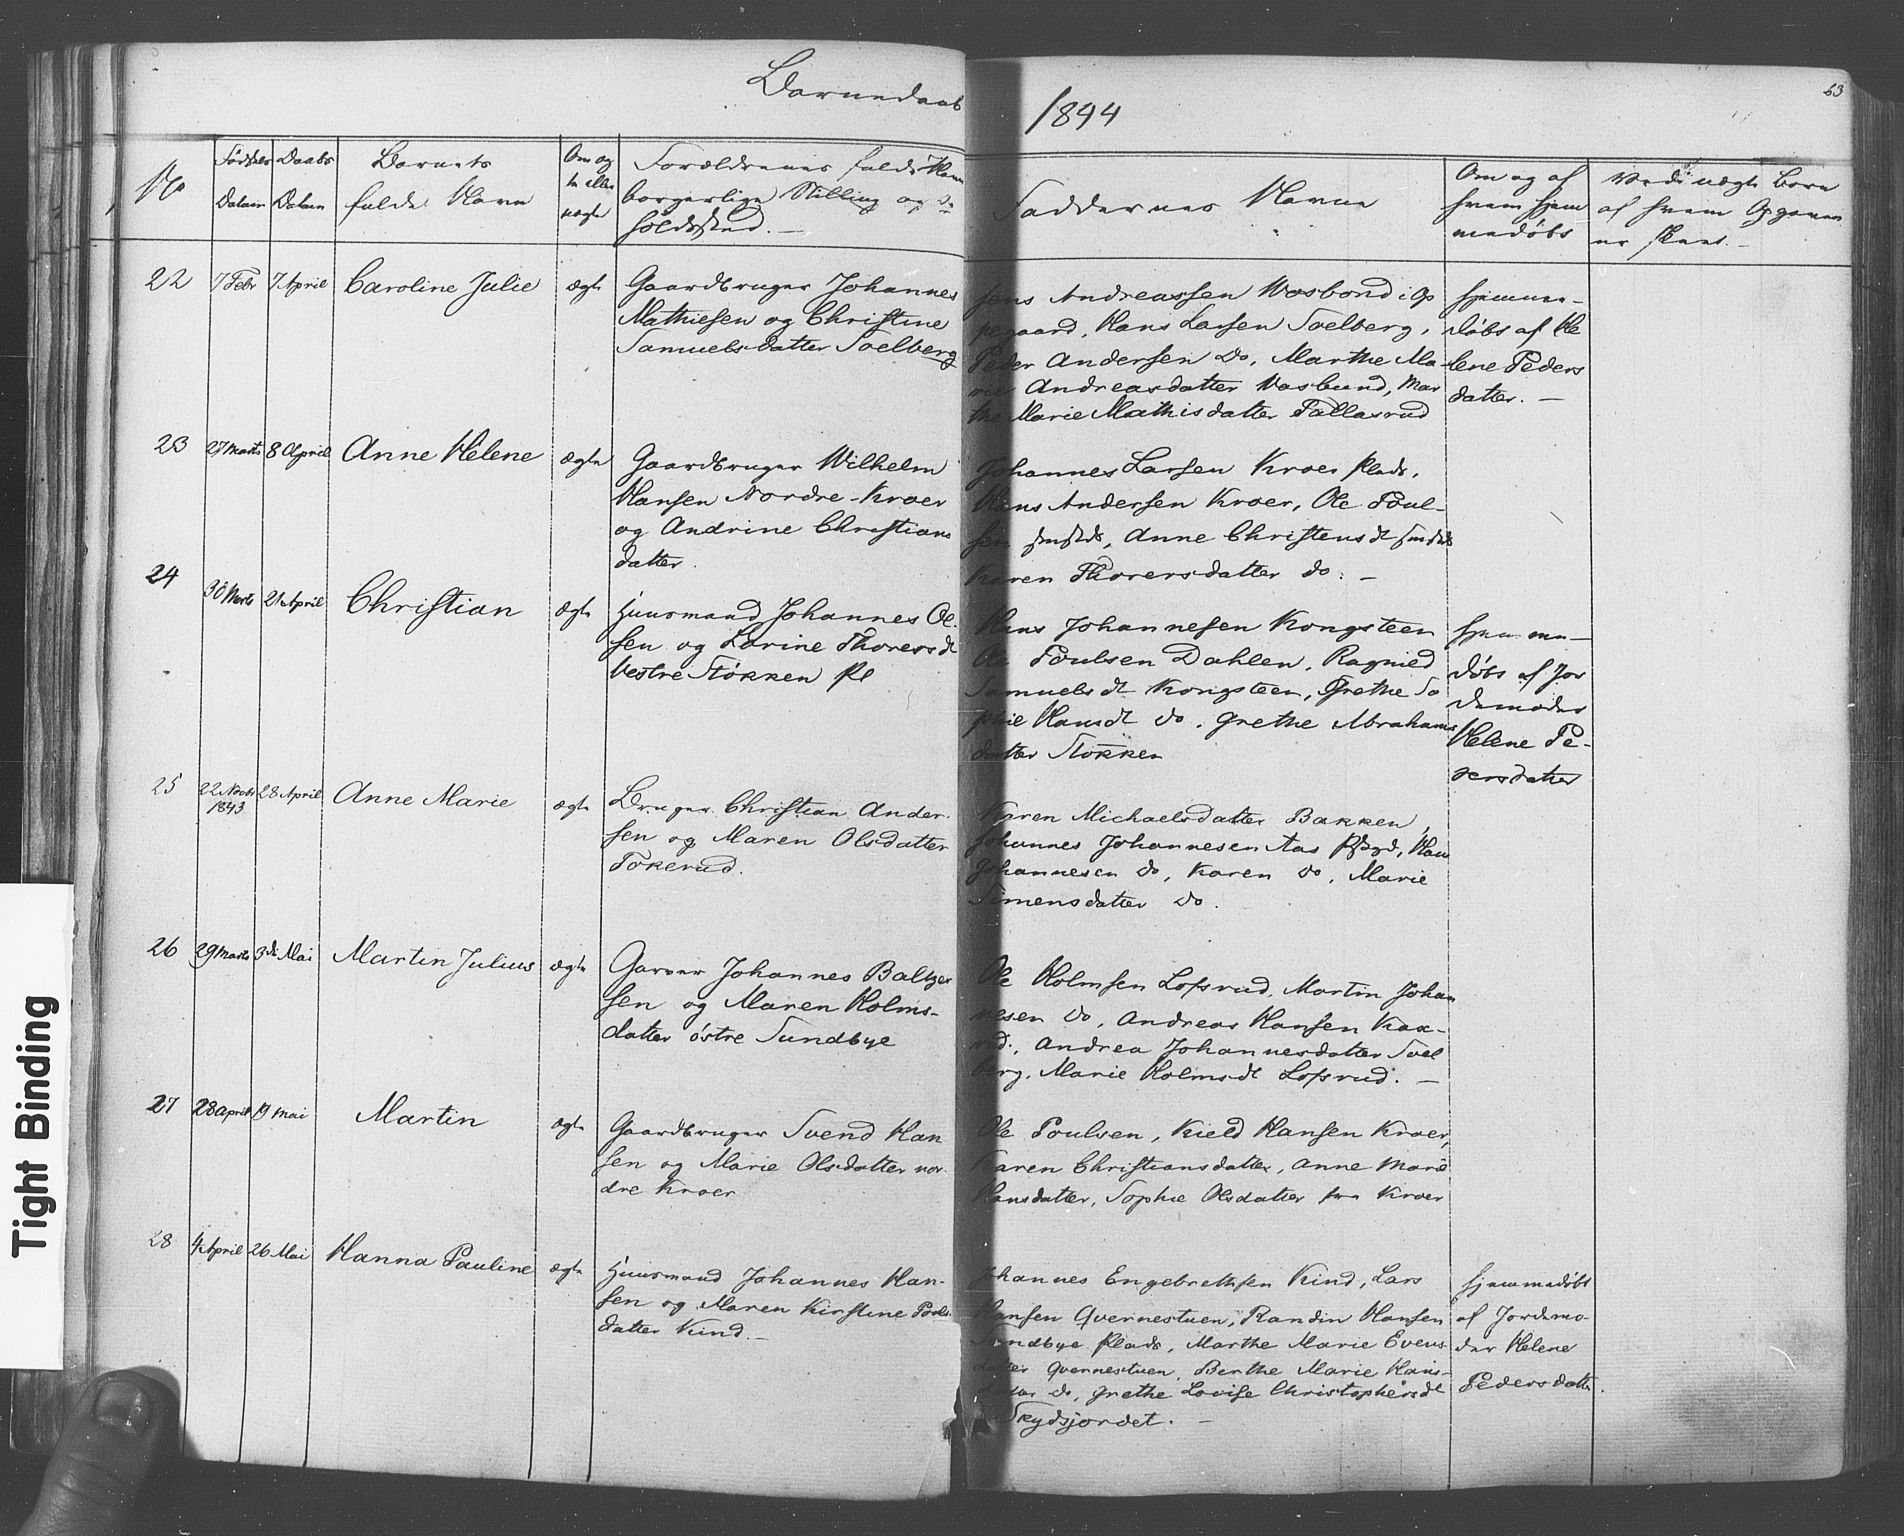 Barnedaab
1844
63
No
Fødsels Datum
Daabs Datum
Barnets
fulde Navn
Om æg
te eller
uægte
Forældrenes fulde Navn
borgerlige Stilling og O
holdssted. —
Faddernes Navne
Om og af
hvem hjem
medøbt
Ved uægte Børn
af hvem Opgaven
er skeet. —
22 7 Febr 7 April Caroline Julie ægte
Gaardbruger Johannes
Mathiesen og Christine
Samuelsdatter Soelberg
Jens Andreassen Wosbond i Op
pegaard, Hans Larsen Soelberg,
Peder Andersen do, Marthe Ma-
rie Andreasdatter Wosbund, Mar
the Marie Mathisdatter Tallasrud
hjemme-
døbt af He
lene Peders
datter. —
23 27 Marts 8 April Anne Helene ægte
Gaardbruger Wilhelm
Hansen Nordre-Kroer
og Andrine Christians
datter.
Johannes Larsen Kroer Plads,
Hans Andersen Kroer, Ole Poul-
sen , Anne Christensdt
Karen Thorersdatter do. —
24 30 Marts 21 April Christian ægte
Huusmand Johannes Ol-
sen og Larine Thorersdt
Vestre Støkken Pl
Hans Johannesen Kongsteen
Ole Poulsen Dahlen, Ragnild
Samuelsdt Kongsteen, Grethe So
phie Hansdt do, Grethe Abrahams
datter Støkken
hjemme-
døbt af Jor
demoder
Helene Pe-
dersdatter
25 22 Novbr 1843 28 April Anne Marie ægte
Bruger Christian Ander-
sen og Maren Olsdatter
Tokerud.
Karen Michaelsdatter Bakken,
Johannes Johannesen Aas , Hans
Johannesen do, Karen do, Marie
Simensdatter do.
26 29 Marts 3de Mai Martin Julius ægte
Garver Johannes Baltzer
sen og Maren Holms-
datter østre Sundbye
Ole Holmsen Lofsrud, Martin Johan
nesen do, Andreas Hansen Kax-
rud, Andrea Johannesdatter Soel
berg, Marie Holmsdt Lofsrud. —
27 28 April 19 Mai Martin ægte
Gaardbruger Svend Han
sen og Marie Olsdatter nor
dre Kroer
Ole Poulsen, Kield Hansen Kroer,
Karen Christiansdatter, Anne Marie
Hansdatter, Sophie Olsdatter fra Kroer
28 4 April 26 Mai Hanna Pauline ægte
Huusmand Johannes Han-
sen og Maren Kirstine Pouls
datter Kind. —
Johannes Engebrethsen Kind, Lars
Hansen Qvernestuen, Randin Hansen
Sundbye Plads, Marthe Marie Evens
datter Qvernestuen, Berthe Marie Hans-
datter do, Grethe Lovise Christophersdt
Skydsjordet. —
hjemmedøbt
af Jordemo-
der Helene
Pedersdatter.
Tight Binding